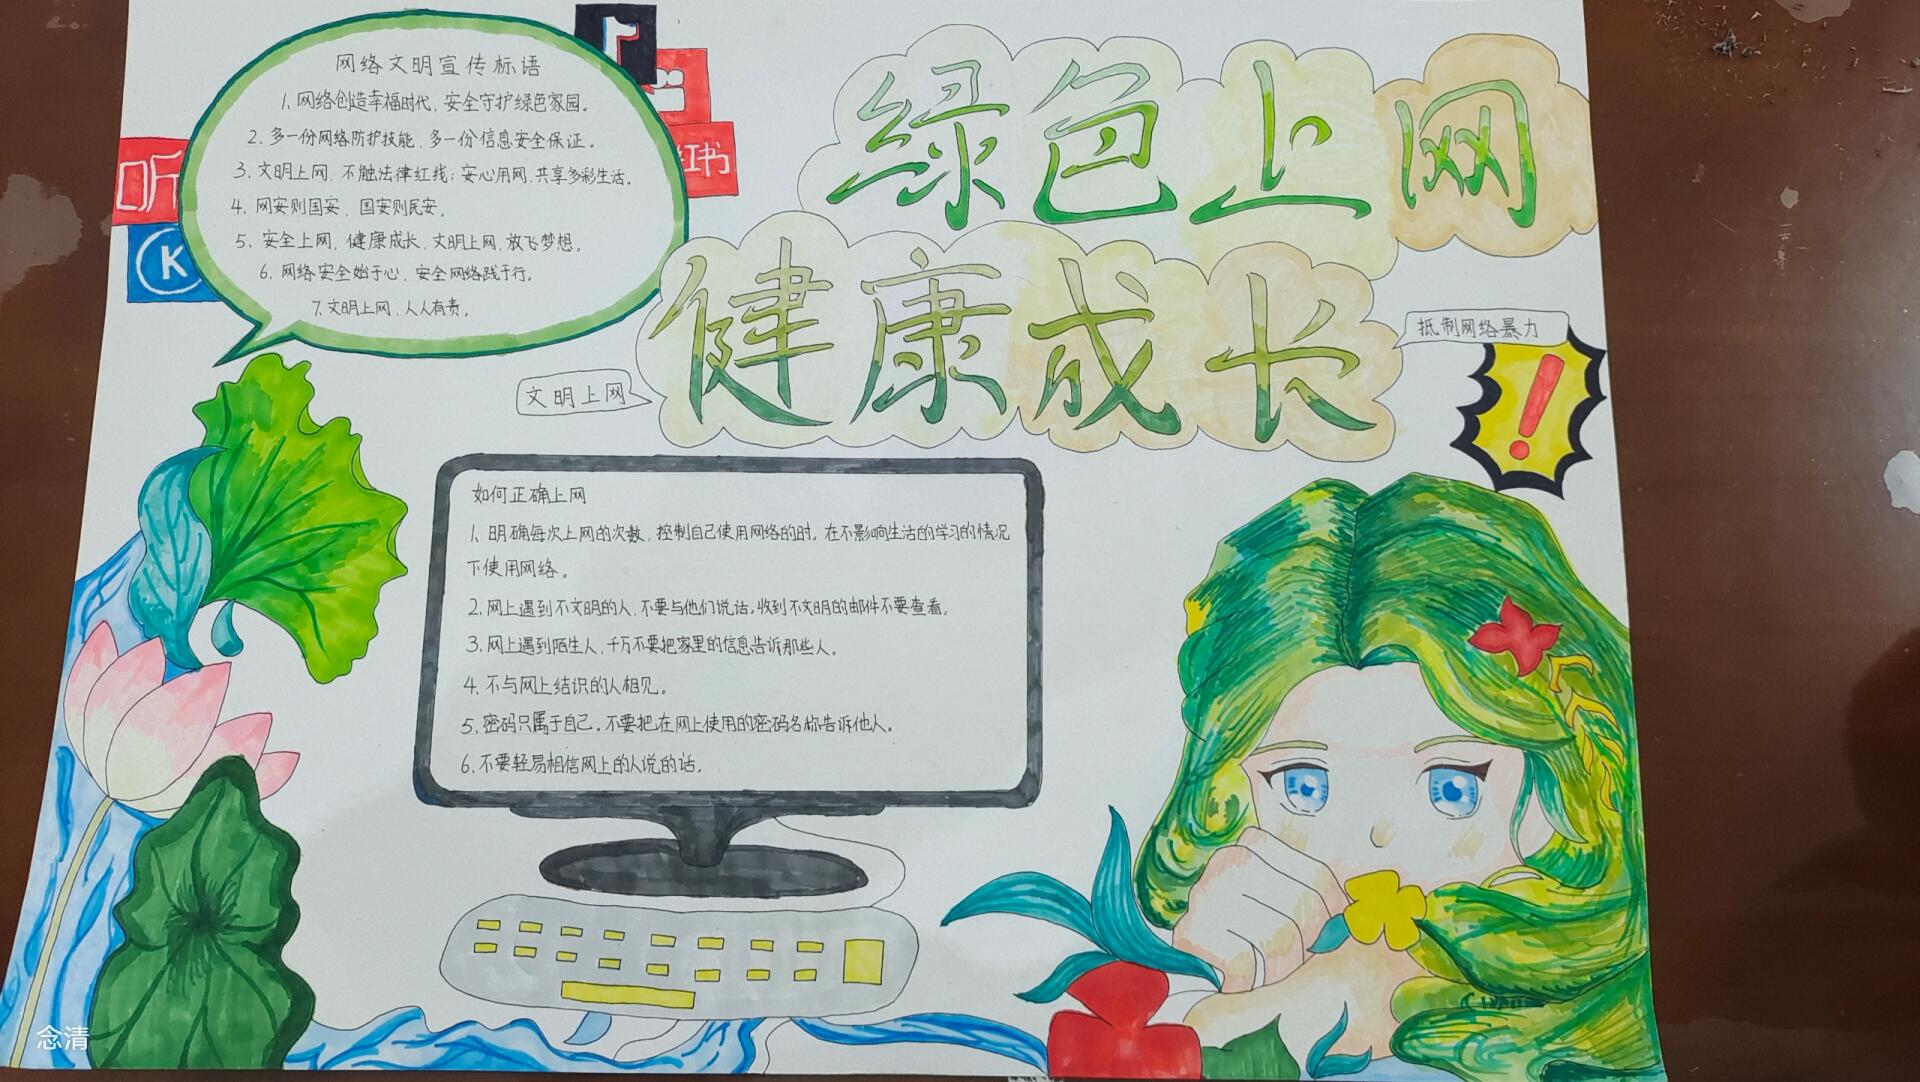 绿色上网
健康成长
网络文明宣传标语
1. 网络创造幸福时代，安全守护绿色家园。
2. 多一份网络防护技能，多一份信息安全保证。
3. 文明上网，不触法律红线；安心用网，共享多彩生活。
4. 网安则国安，国安则民安。
5. 安全上网，健康成长，文明上网，放飞梦想。
6. 网络安全始于心，安全网络践于行。
7. 文明上网，人人有责。
听
K
红书
文明上网
抵制网络暴力
!
如何正确上网
1、明确每次上网的次数，控制自己使用网络的时。在不影响生活的学习的情况
下使用网络。
2. 网上遇到不文明的人，不要与他们说话。收到不文明的邮件不要查看。
3. 网上遇到陌生人，千万不要把家里的信息告诉那些人。
4. 不与网上结识的人相见。
5. 密码只属于自己。不要把在网上使用的密码名称告诉他人。
6. 不要轻易相信网上的人说的话。
念清